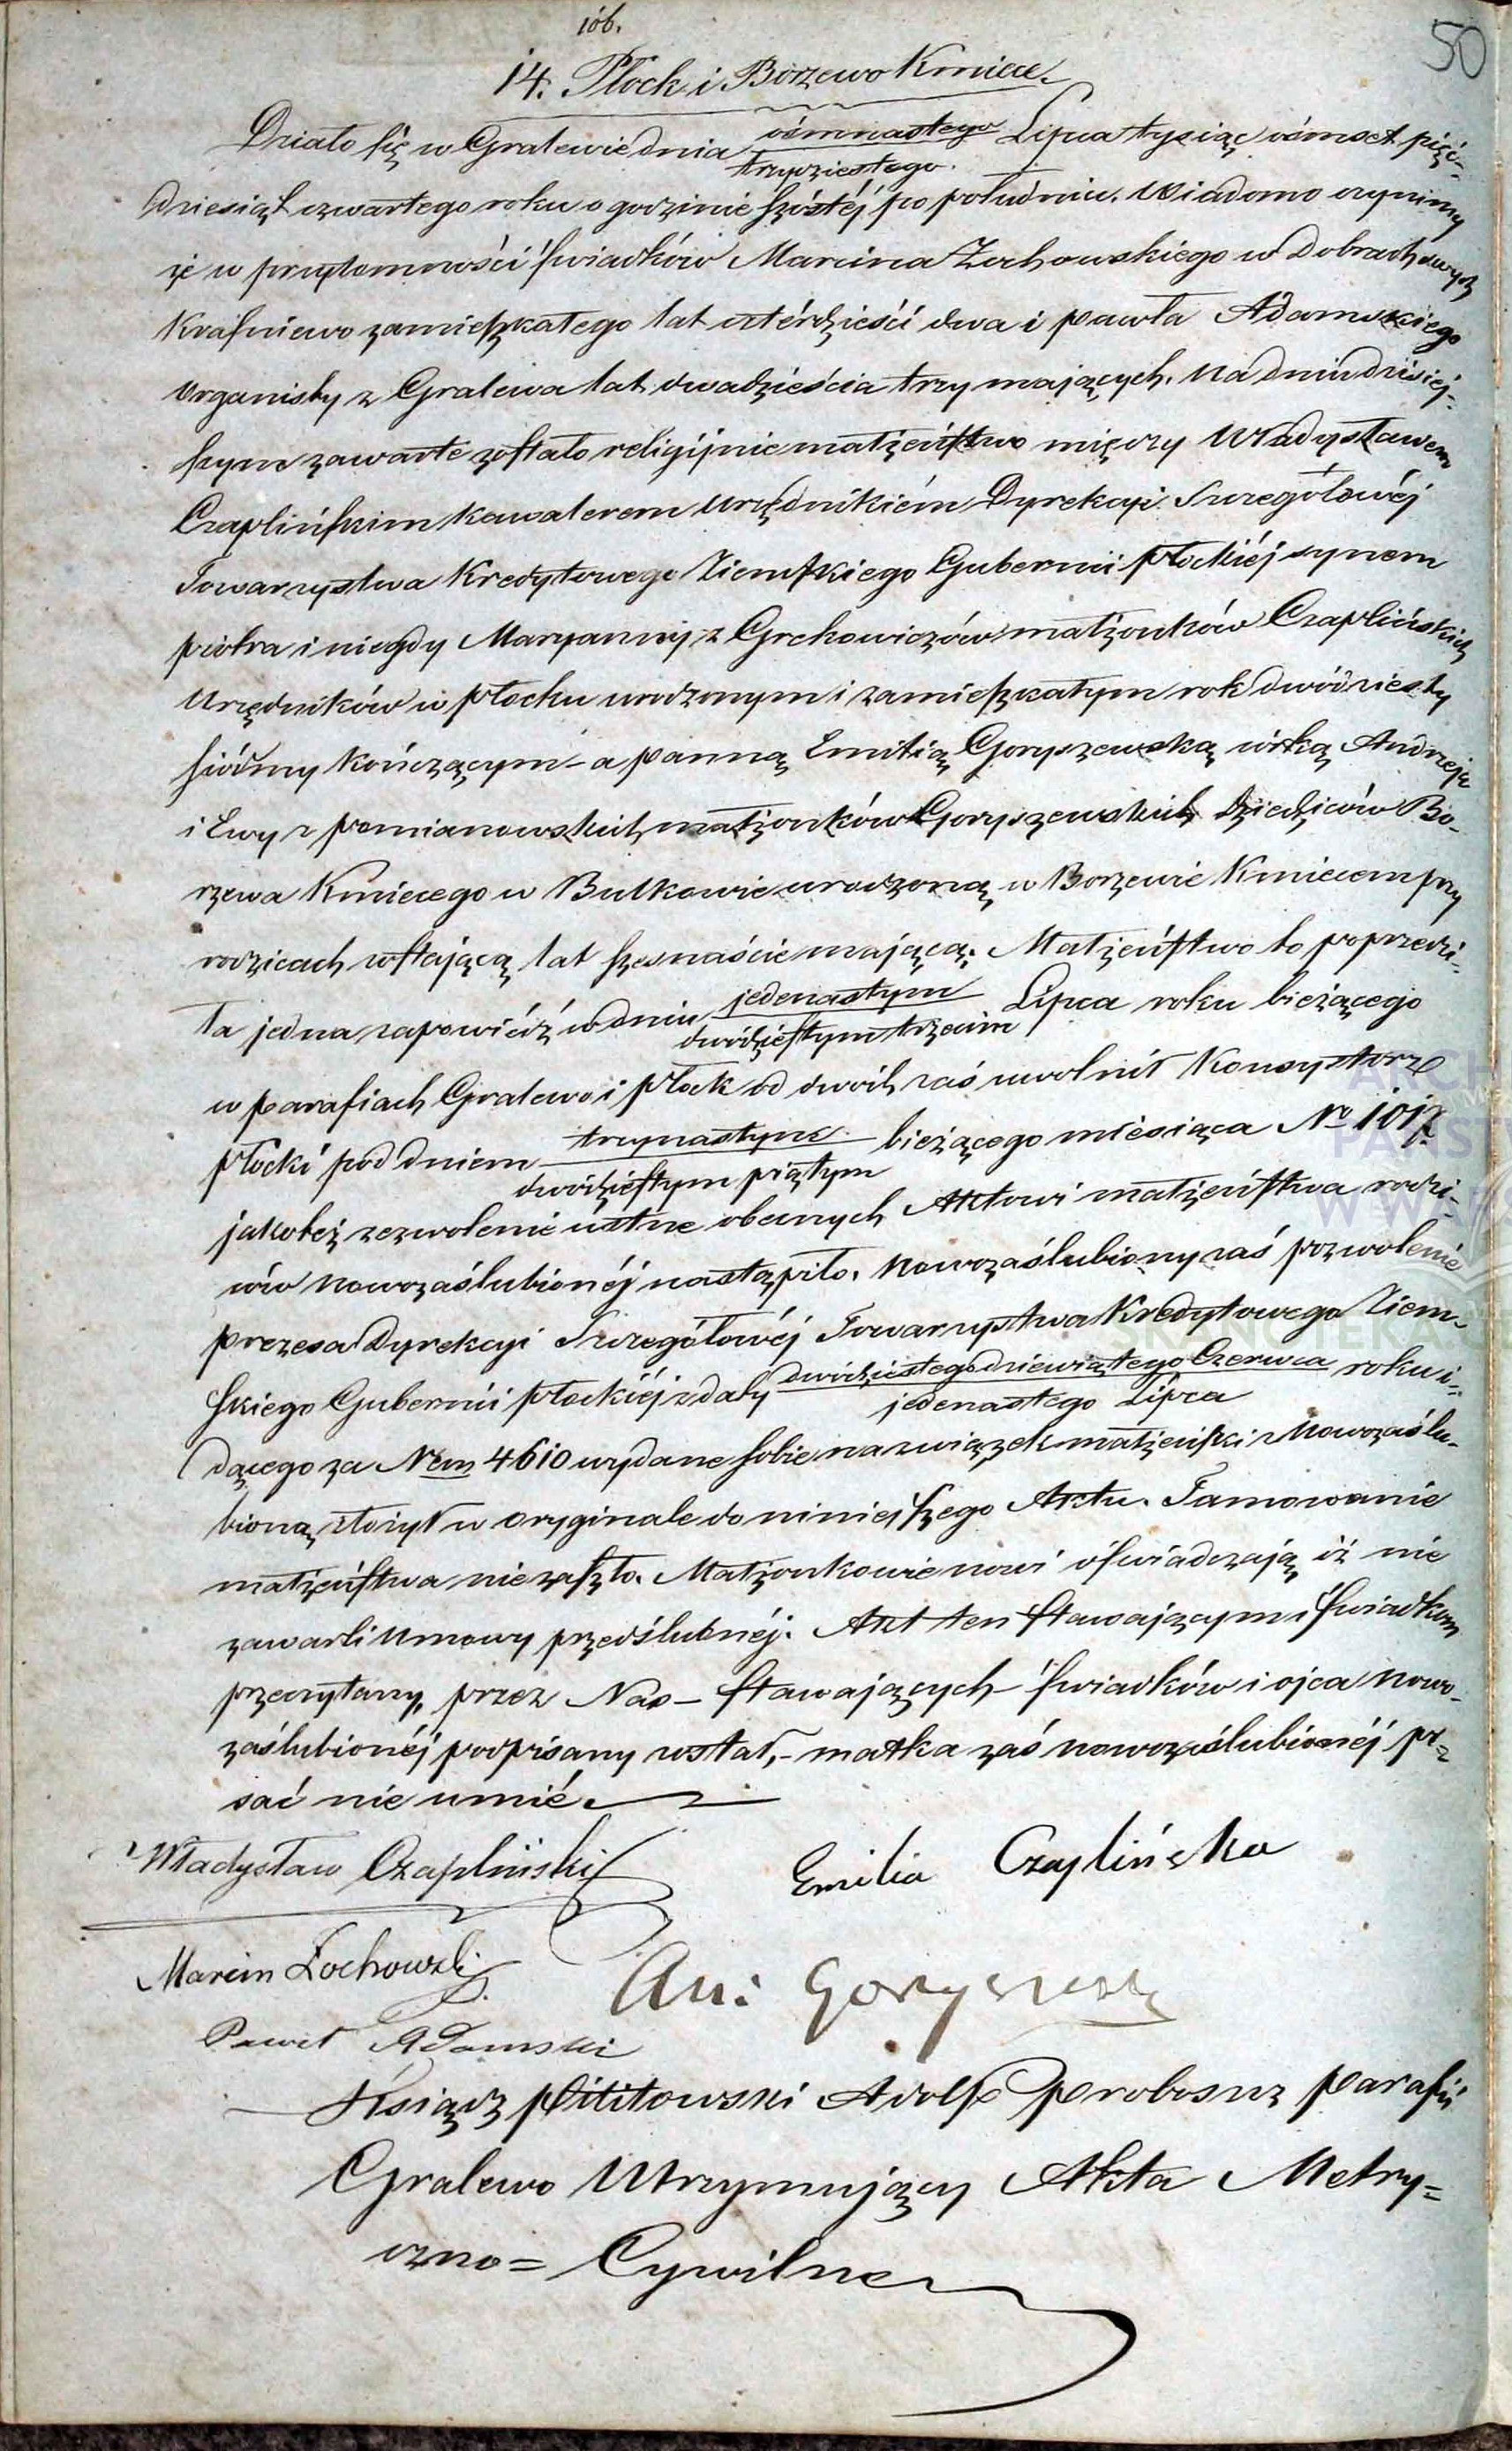 106.
50
14. Płock i Borzewo Kmiece.
Działo się w Gralewie dnia ośmnastego / trzydziestego Lipca tysiąc ośmset pięć-
dziesiąt czwartego roku o godzinie szóstéj po południu. Wiadomo czynimy
że w przytomności świadków Marcina Żochowskiego w Dobrach swych
Kraśniewo zamieszkałego lat czterdzieści dwa i Pawła Adamskiego
Organisty z Gralewa lat dwadzieścia trzy mających. Na dniu dzisiej-
szym zawarte zostało religijnie małżeństwo między Władysławem
Czaplińskim kawalerem Urzędnikiem Dyrekcyi Szczegółowéj
Towarzystwa Kredytowego Ziemskiego Gubernii płockiéj synem
piotra i niegdy Maryanny z Grekowiczów małżonków Czaplińskich
Urzędników w płocku urodzonym i zamieszkałym rok dwódziesty
siódmy kończącym - a panną Emilią Goryszewską córką Andrzeja
i Ewy z pomianowskich małżonków Goryszewskich dziedziców Bo-
rzewa Kmiecego w Bulkowie urodzoną w Borzewie Kmiecem przy
rodzicach zostającą lat szesnaście mającą. Małżeństwo to poprzedzi-
ła jedna zapowiédź w dniu jedenastym / dwódziestym trzecim Lipca roku bieżącego
w parafiach Gralewo i płock od dwóch zaś uwolnił Konsystorz
płocki pod dniem trzynastym / dwódziestym piątym bieżącego miesiąca No 1017
jakoteż zezwolenie ustne obecnych Aktowi małżeństwa rodzi-
ców Nowozaślubionéj nastąpiło. Nowozaślubiony zaś pozwolenie
prezesa Dyrekcyi Szczegółowéj Towarzystwa Kredytowego Ziem-
skiego Gubernii płockiéj z daty dwódziestego dziewiątego Czerwca / jedenastego Lipca roku i-
dącego za Nem 4610 wydane sobie na związek małżeński z Nowozaślu-
bioną złożył w oryginale do niniejszego Aktu. Tamowanie
małżeństwa nie zaszło. Małżonkowie nowi oświadczają iż nie
zawarli Umowy przedślubnéj. Akt ten stawającym i świadkom
przeczytany, przez Nas - stawających - świadków i ojca Nowo-
zaślubionéj podpisany został, - matka zaś nowozaślubionéj pi-
sać nie umié.
Władysław Czapliński
Emilia Czaplińska
Marcin Żochowski
An: Goryszewski
Paweł Adamski
Ksiądz Adolf Proboszcz parafii
Gralewo Utrzymujący Akta Metry=
czno= Cywilne